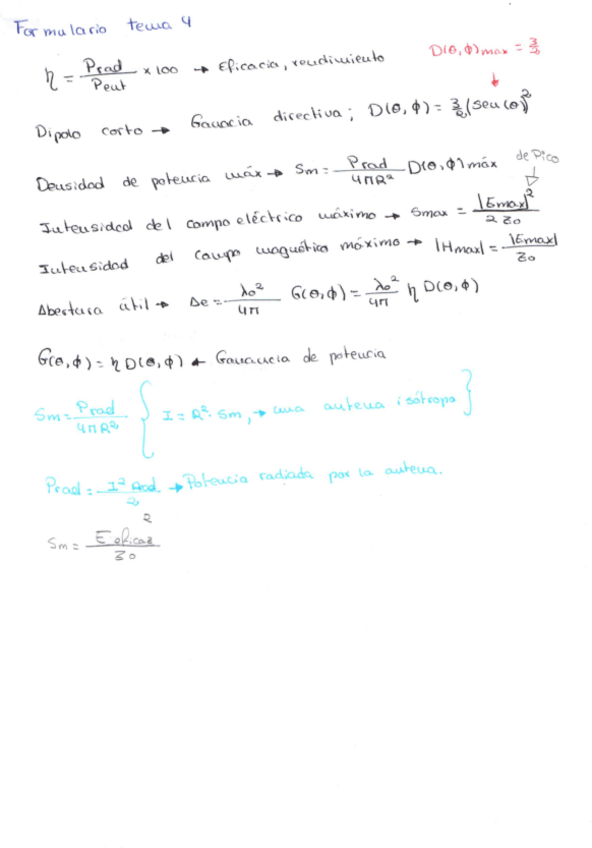 Formulario tema 4
D(θ,ϕ)max = 3/2
η = Prad/Pent × 100 → Eficacia, rendimiento
Dipolo corto → Ganancia directiva; D(θ,ϕ) = 3/2 (sen(θ))²
Densidad de potencia máx → Sm = Prad/4πR² D(θ,ϕ) máx
de Pico
Intensidad del campo eléctrico máximo → Smax = |Emax|²/2 Zo
Intensidad del campo magnético máximo → |Hmax| = |Emax|/Zo
Abertura útil → Ae = λo²/4π G(θ,ϕ) = λo²/4π η D(θ,ϕ)
G(θ,ϕ) = η D(θ,ϕ) ← Ganancia de potencia
Sm = Prad/4πR² { I = R² · Sm, → una antena isótropa }
Prad = I² Rrad./2 → Potencia radiada por la antena.
Sm = E eficaz²/Zo